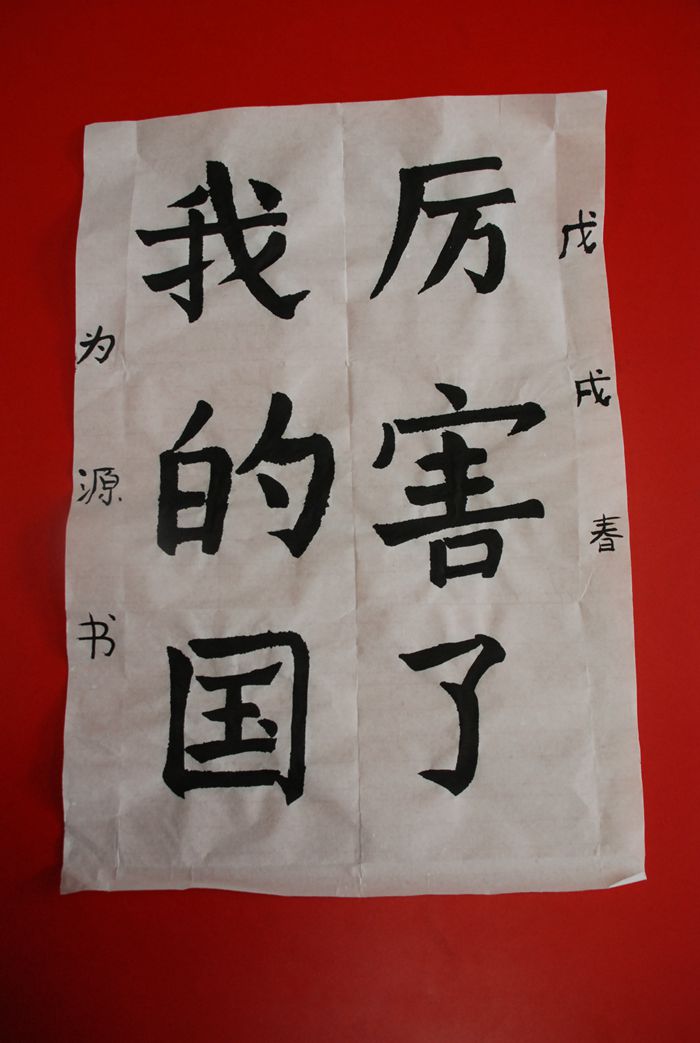 戊戌春
厉害了
我的国
为源书